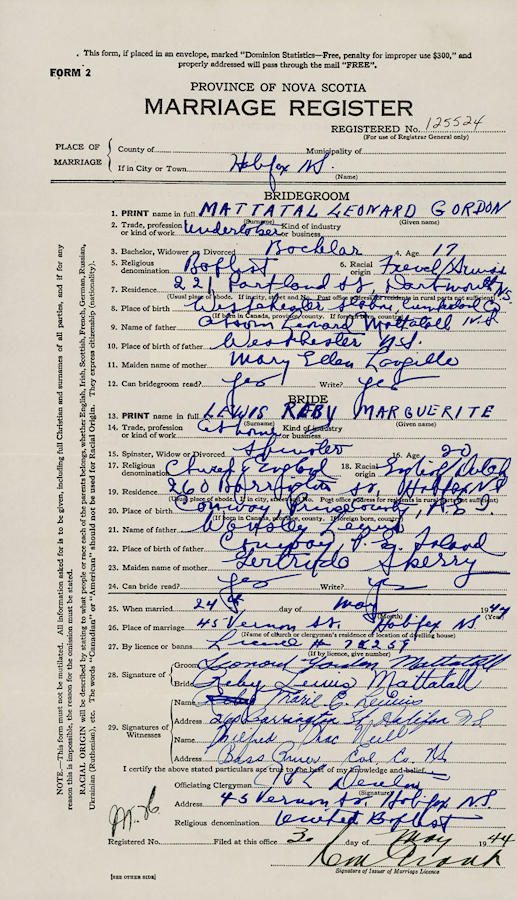 . This form, if placed in an envelope, marked "Dominion Statistics—Free, penalty for improper use $300," and
properly addressed will pass through the mail "FREE".
FORM 2
PROVINCE OF NOVA SCOTIA
MARRIAGE REGISTER
REGISTERED No. 125524
(For use of Registrar General only)
PLACE OF MARRIAGE
County of Municipality of
If in City or Town Halifax NS
(Name)
BRIDEGROOM
1. PRINT name in full MATTATAL LEONARD GORDON
(Surname) (Given name)
2. Trade, profession or kind of work Kind of industry or business
3. Bachelor, Widower or Divorced Bachelar 4. Age 17
5. Religious denomination Baptist 6. Racial origin French/
7. Residence 221 Portland St, Dartmouth NS.
(Usual place of abode. If in city, street and No. Post office address for residents in rural parts not sufficient)
8. Place of birth Westchester
(If born in Canada, province, county. If foreign born, country)
9. Name of father Leonard Mattatall
10. Place of birth Westchester N.S.
11. Maiden name of mother Mary Ellen
12. Can bridegroom read? Yes Write? Yes
BRIDE
13. PRINT name in full LEWIS REBY MARGUERITE
(Surname) (Given name)
14. Trade, profession or kind of work At home Kind of industry or business
15. Spinster, Widow or Divorced Spinster 16. Age 20
17. Religious denomination Church England 18. Racial origin English/Dutch
19. Residence 260 Barrington St, Halifax NS
(Usual place of abode. If in city, street and No. Post office address for residents in rural parts not sufficient)
20. Place of birth Conway, Prince County, P.E.I.
(If born in Canada, province, county. If foreign born, country)
21. Name of father Lewis
22. Place of birth of father Conway P.E. Island
23. Maiden name of mother Gertrude Sherry
24. Can bride read? Yes Write? Yes
25. When married 24 day of May 1944
(Month) (Year)
26. Place of marriage 45 Vernon St. Halifax NS
(Name of church or clergyman's residence or location of dwelling house)
27. By licence or banns Licence
(If by licence, give number)
28. Signature of
Groom Leonard Gordon Mattatall
Bride Reby Lewis Mattatall
29. Signatures of Witnesses
Name E. Lewis
Address Barrington St. Halifax N.S.
Name Wilfred Mac Neill
Address Bass River Col. Co. NS
I certify the above stated particulars are true to the best of my knowledge and belief.
Officiating Clergyman
(Signature)
Address 45 Vernon St, Halifax NS.
Religious denomination United Baptist
Registered No. Filed at this office 30 day of May 1944
Signature of Issuer of Marriage Licence
[SEE OTHER SIDE]
NOTE.—This form must not be mutilated. All information asked for is to be given, including full Christian and surnames of all parties, and if for any
reason this is impossible, the reason for the omission must be stated.
RACIAL ORIGIN will be described by stating to what people or race each of the parents belongs, whether English, Irish, Scottish, French, German, Russian,
Ukrainian (Ruthenian), etc. The words "Canadian" or "American" should not be used for Racial Origin. They express citizenship (nationality).